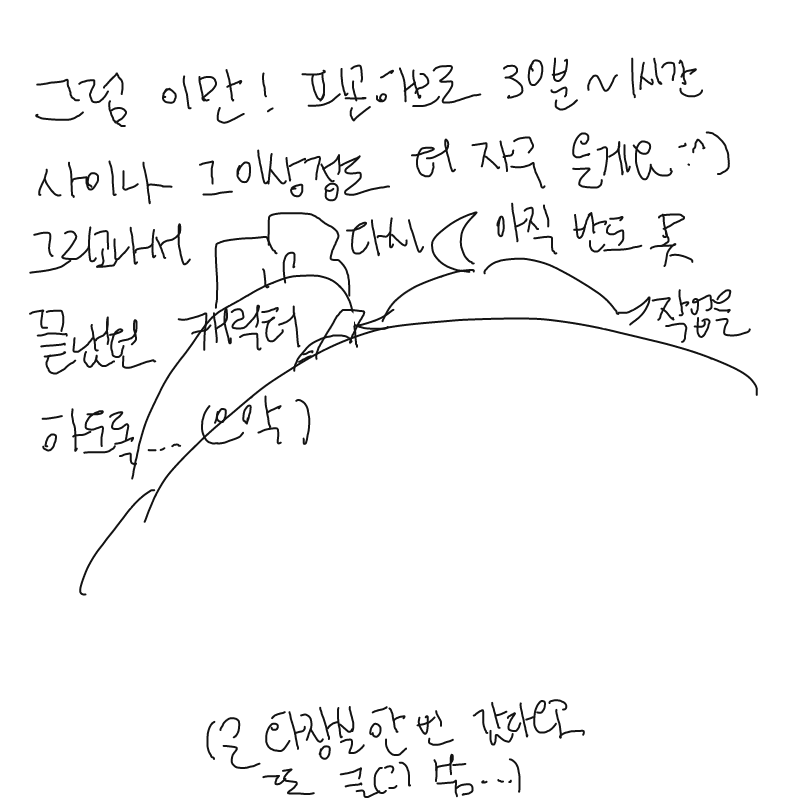 그럼 이만! 피곤하므로 30분~1시간
사이나 그 이상정도 더 자구 올게요:^)
그리고나서 다시 아직 반도 못
끝냈던 캐릭터 작업을
하도록... (으악)
(곧 화장실 한 번 갔다오고
또 글(?) 씀...)